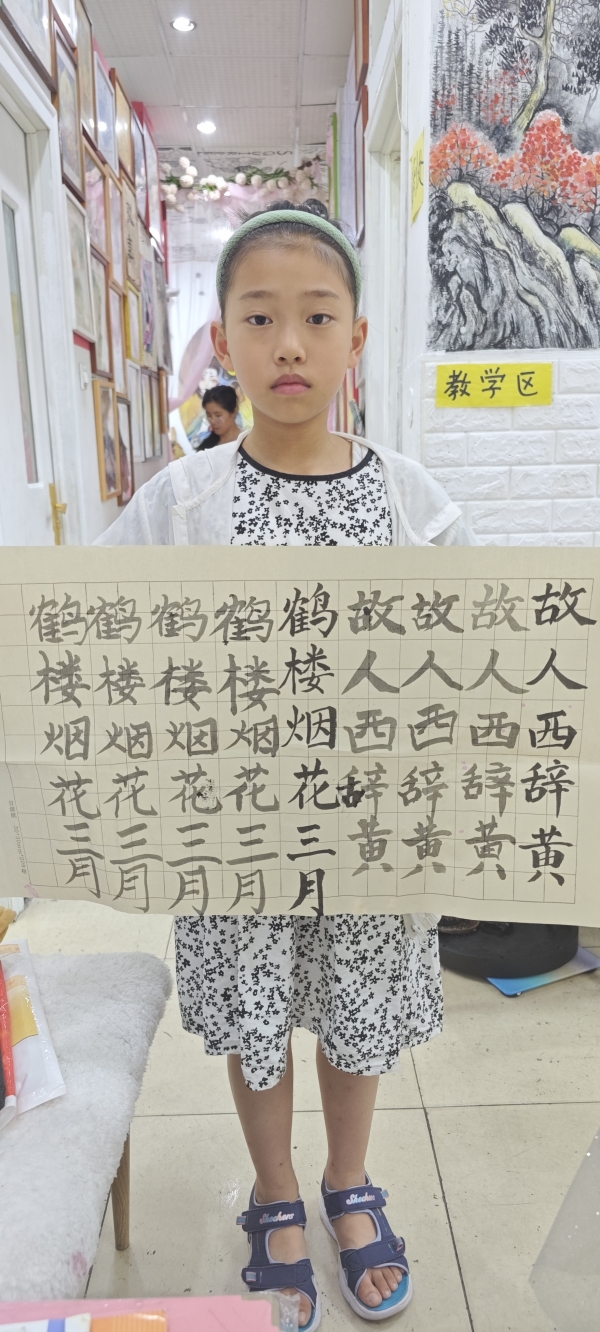 教学区
故人西辞黄
故人西辞黄
故人西辞黄
故人西辞黄
鹤楼烟花三月
鹤楼烟花三月
鹤楼烟花三月
鹤楼烟花三月
鹤楼烟花三月
Skechers
Skechers